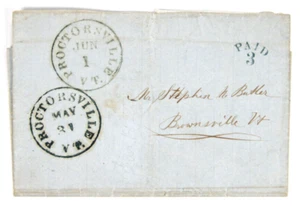 PROCTORSVILLE
JUN
1
VT.
PAID
3
PROCTORSVILLE
MAY
31
Mr Stephen
Brownsville Vt